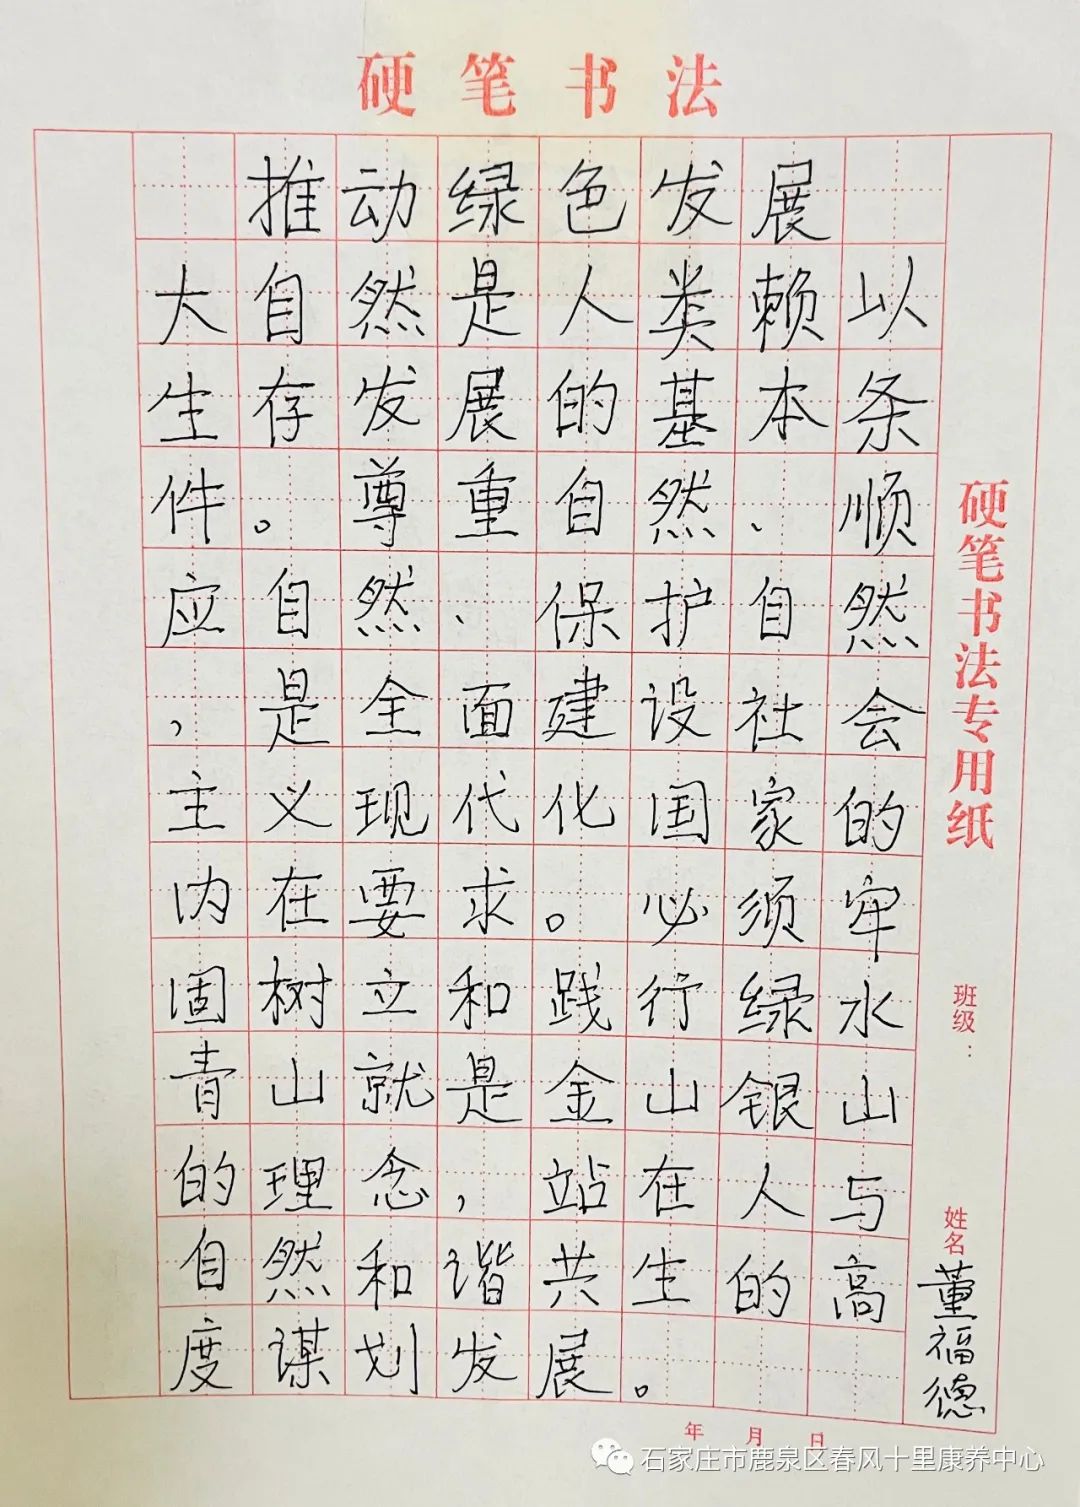 硬笔书法
推动绿色发展
大自然是人类赖以
生存发展的基本条
件。尊重自然、顺
应自然、保护自然
，是全面建设社会
主义现代化国家的
内在要求。必须牢
固树立和践行绿水
青山就是金山银山
的理念，站在人与
自然和谐共生的高
度谋划发展。
硬笔书法专用纸
班级：
姓名
董福德
年 月 日
石家庄市鹿泉区春风十里康养中心